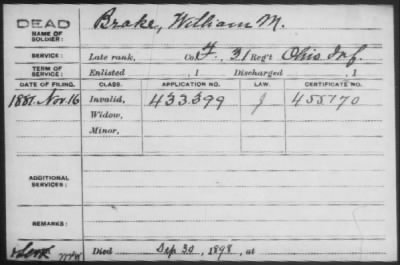 DEAD
NAME OF SOLDIER:
Brake, William M.
SERVICE:
Late rank, Co. F, 31 Reg't Ohio Inf.
TERM OF SERVICE:
Enlisted , 1 Discharged , 1
DATE OF FILING. CLASS. APPLICATION NO. LAW. CERTIFICATE NO.
1881. Nov. 16 Invalid, 433399 J 455170
Widow,
Minor,
ADDITIONAL SERVICES:
REMARKS:
Died Sep. 30, 1898, at